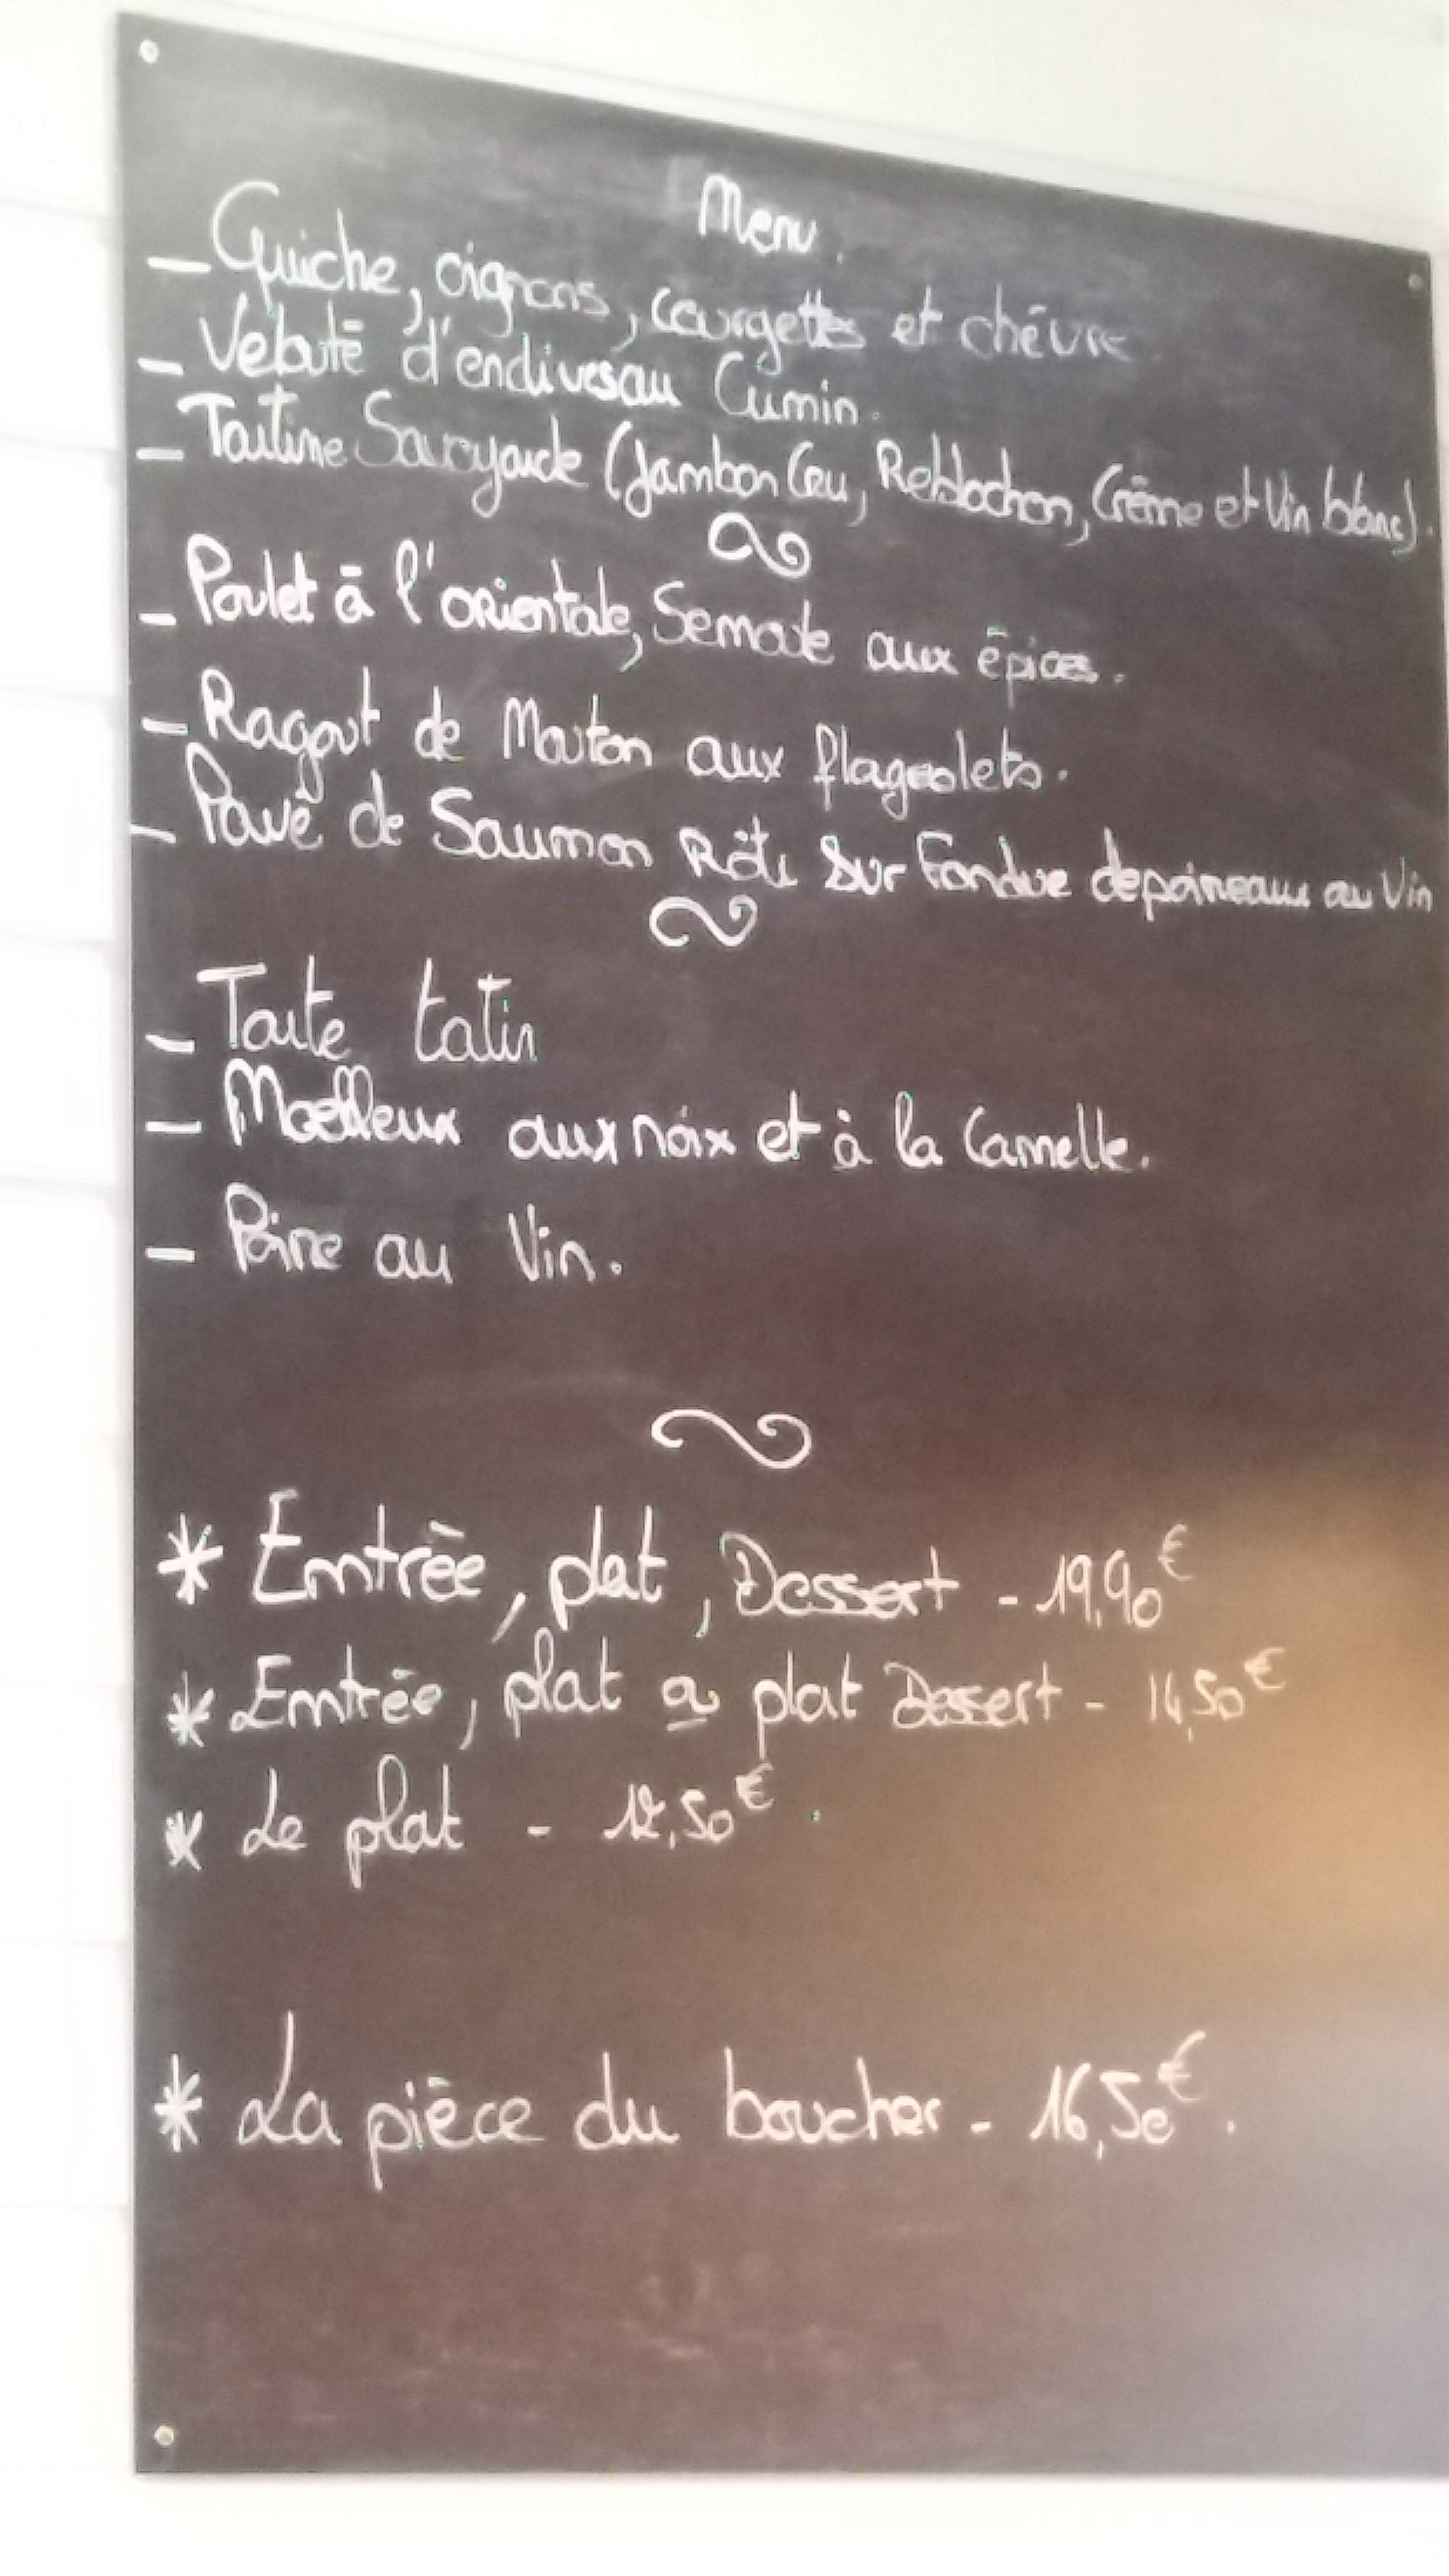 Menu.
- Quiche, oignons, courgettes et chévre.
- Velouté d'endives au Cumin.
- Tartine Savoyarde (Jambon Cru, Reblochon, Crème et Vin blanc).
- Poulet à l'orientale, Semoule aux épices.
- Ragout de Mouton aux flageolets.
- Pavé de Saumon Rôti sur Fondue de poireaux au Vin
- Tarte tatin
- Moelleux aux noix et à la Cannelle.
- Poire au Vin.
* Entrée, plat, Dessert - 19,90€
* Entrée, plat ou plat Dessert - 14,50€
* Le plat - 12,50€.
* La pièce du boucher - 16,50€.